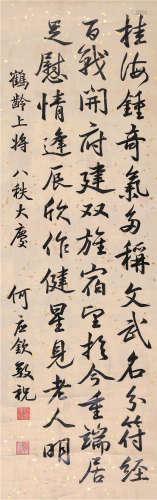 桂海鍾奇氣多稱文武名分符經
百戰開府建双旌宿望於今重端居
足慰情逢辰欣作健星見老人明
鶴齡上將 八秩大慶
何應欽敬祝